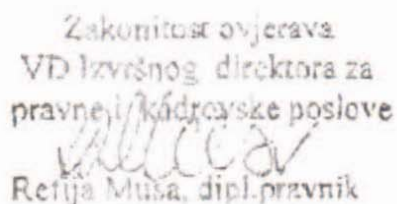 Zakonitost ovjerava
VD Izvršnog direktora za
pravne i kadrovske poslove
Refija Muša, dipl.pravnik